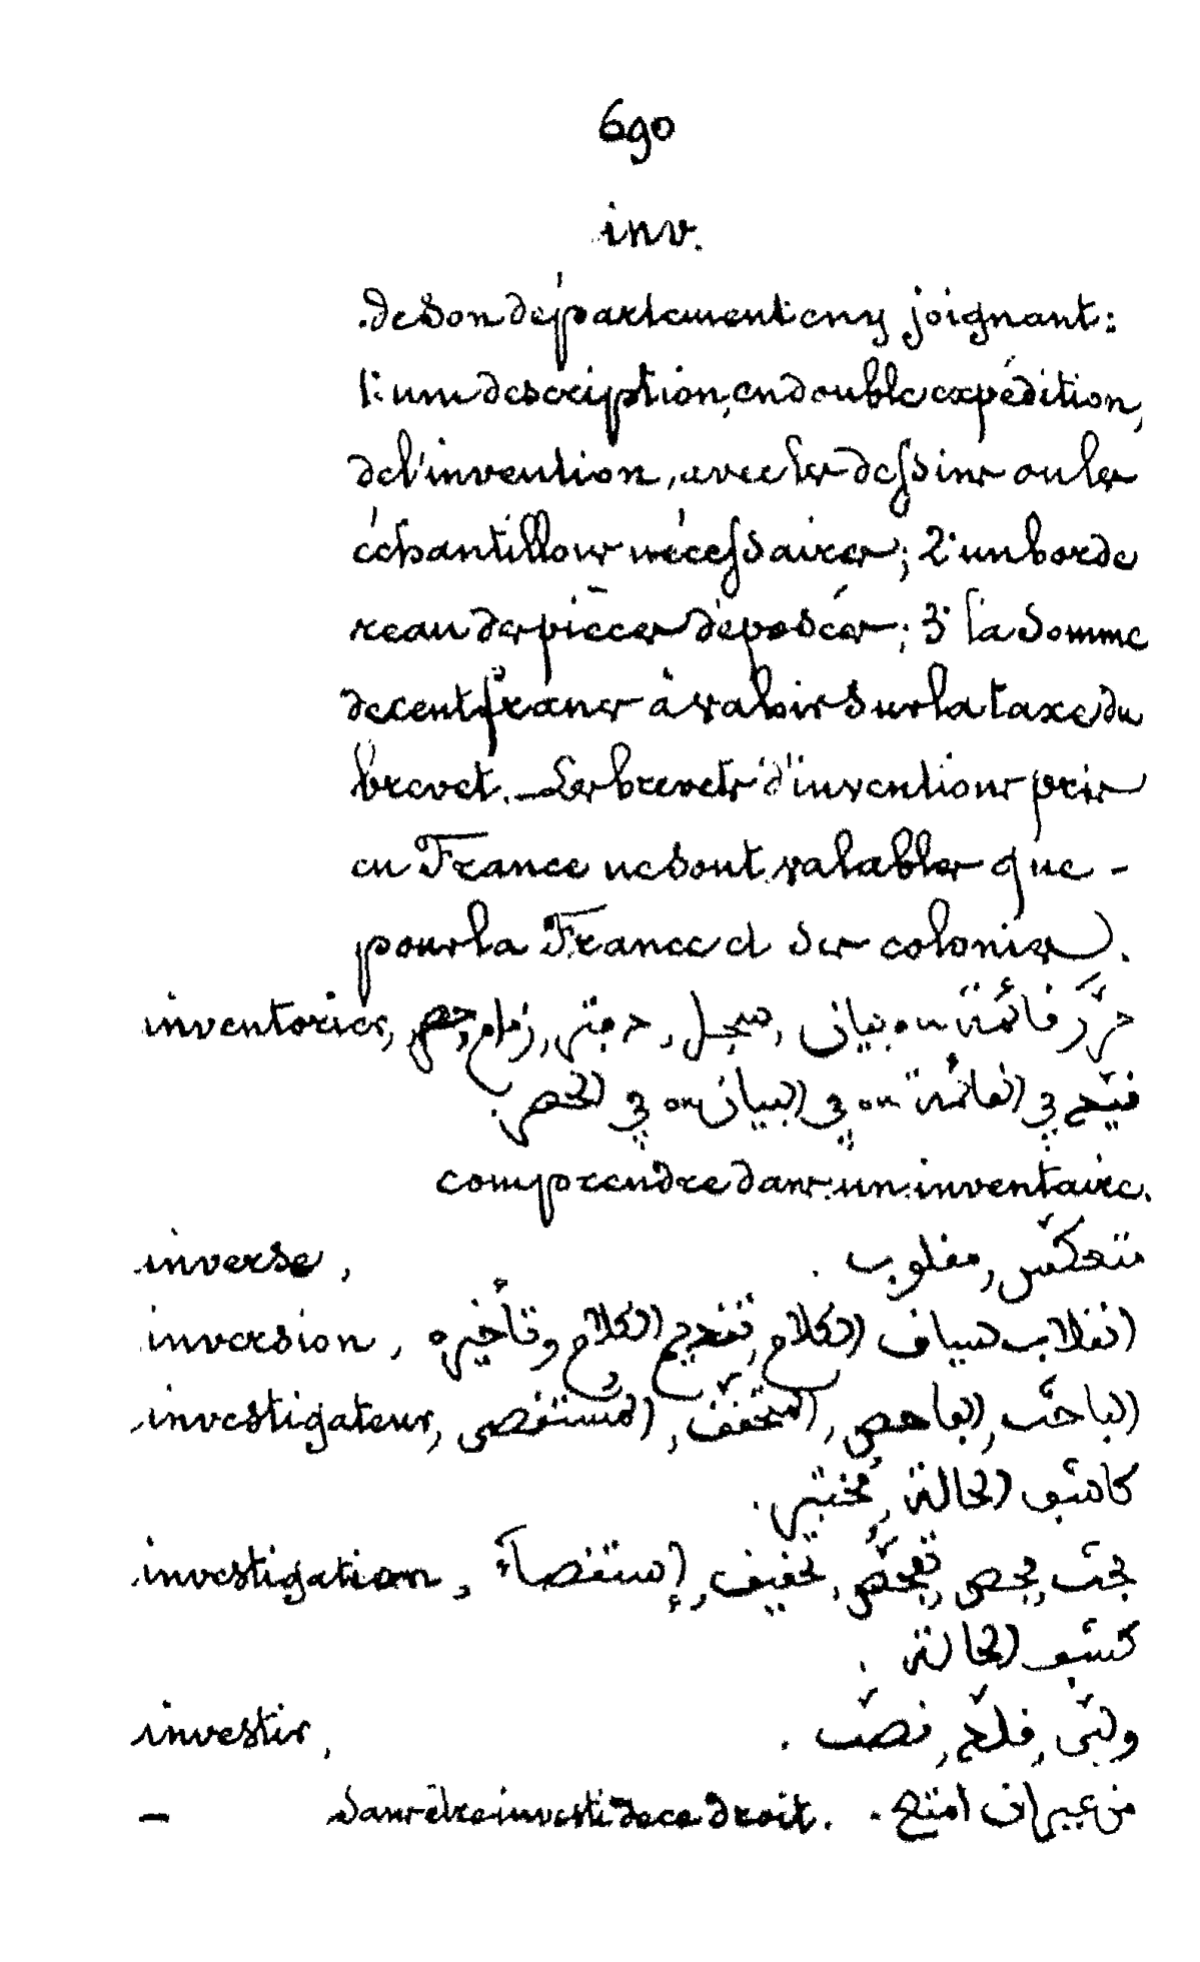 690
inv.
de son département en y joignant :
1° une description, en double expédition,
de l'invention, avec les dessins ou les
échantillons nécessaires ; 2° un borde
reau des pièces déposées ; 3° la somme
de cent francs à valoir sur la taxe du
brevet. — Les brevets d'inventions pris
en France ne sont valables que -
pour la France et ses colonies).
inventorier, حرّر قائمة ou بيان, سجل, دفتر, زمام, حصر
قيّد في القائمة ou في البيان ou في الحصر.
comprendre dans un inventaire.
inverse, متعكّس, مقلوب.
inversion, انقلاب سياق الكلام, تقديم الكلام وتأخيره
investigateur, الباحث, الفاحص, المحقّق, المستقصى
كاشف الحالة, مختبر.
investigation, بحث, فحص, تفحّص, تحقيق, إستقصآء
كشف الحالة.
investir, ولّى, قلّد, نصّب.
— sans être investi de ce droit. من غير ان